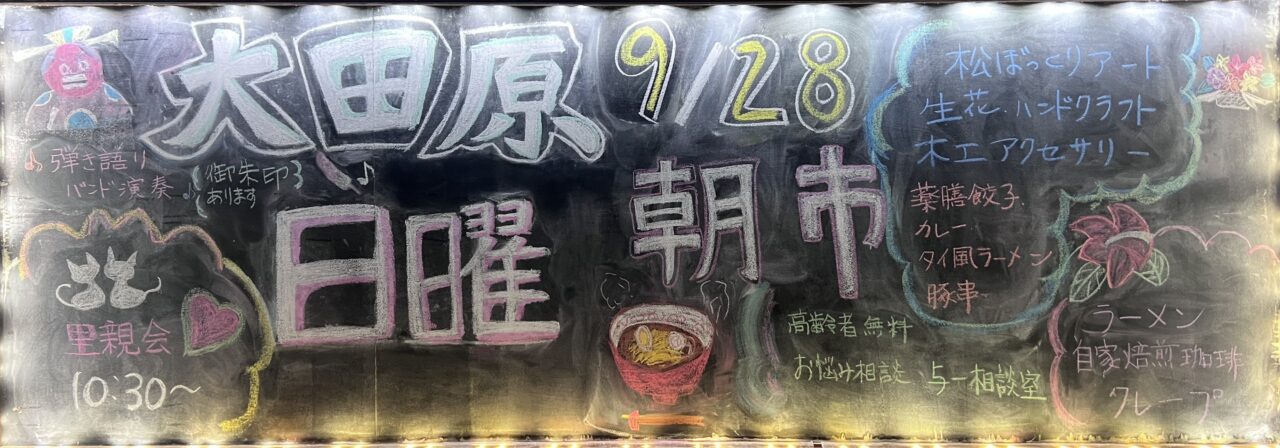 大田原 9/28
日曜 朝市
弾き語り
バンド演奏
御朱印
あります
里親会
10:30〜
松ぼっくりアート
生花・ハンドクラフト
木工アクセサリー
薬膳餃子
カレー
タイ風ラーメン
豚串
高齢者無料
お悩み相談 与一相談室
ラーメン
自家焙煎珈琲
クレープ